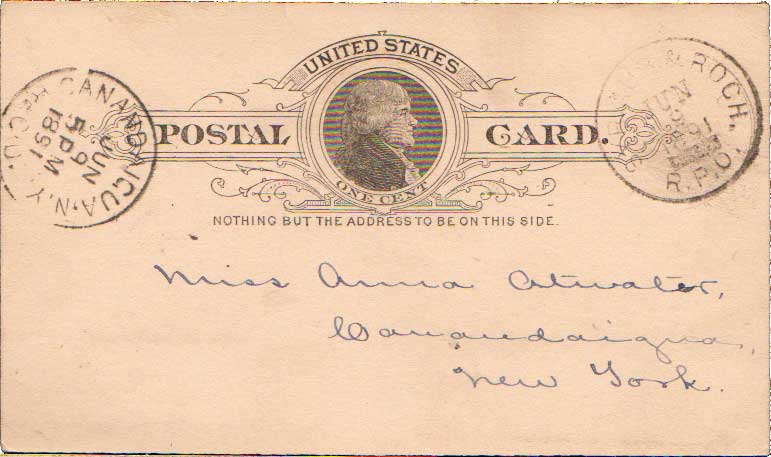 UNITED STATES
POSTAL CARD.
ONE CENT
NOTHING BUT THE ADDRESS TO BE ON THIS SIDE.
CANANDAIGUA, N.Y.
JUN
9
5 PM
1891
REC'D.
& ROCH.
JUN
R.P.O.
Miss Anna Atwater,
Canandaigua,
New York.